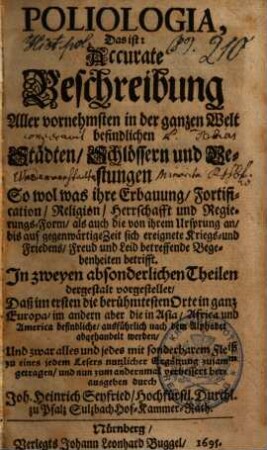 POLIOLOGIA,
Das ist:
Accurate
Beschreibung
Aller vornehmsten in der gantzen Welt
befindlichen
Städten/ Schlössern und Ve-
stungen
So wol was ihre Erbauung/ Fortifi-
cation/ Religion/ Herrschafft und Regie-
rungs-Form/ als auch die von ihrem Ursprung an/
bis auf gegenwärtige Zeit sich ereignete Kriegs- und
Friedens/ Freud und Leid betreffende Bege-
benheiten betrifft.
In zweyen absonderlichen Theilen
dergestalt vorgestellet/
Daß im ersten die berühmtesten Orte in gantz
Europa/ im andern aber die in Asia/ Africa und
America befindliche/ ausführlich nach dem Alphabet
abgehandelt werden/
Und zwar alles und jedes mit sonderbarem Fleiß
zu eines jedem Lesers nutzlicher Ergötzung zusam̃-
getragen/ und nun zum andernmal verbessert her-
ausgeben durch
Joh. Heinrich Seyfried/ Hochfürstl. Durchl.
zu Pfaltz Sultzbach Hof-Kammer-Rath.
Nürnberg/
Verlegts Johann Leonhard Buggel/ 1695.